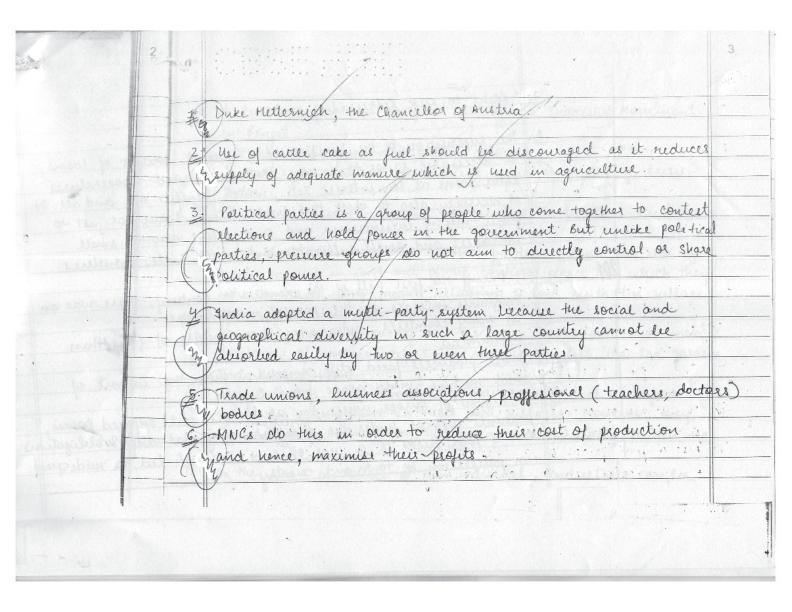 2
3
1. Duke Metternigh, the Chancellor of Austria.
2. Use of cattle cake as fuel should be discouraged as it reduces
supply of adequate manure which is used in agriculture.
3. Political parties is a group of people who come together to contest
elections and hold power in the government but unlike political
parties, pressure groups do not aim to directly control or share
political power.
4. India adopted a multi-party system because the social and
geographical diversity in such a large country cannot be
absorbed easily by two or even three parties.
5. Trade unions, business associations, proffesional (teachers, doctors)
bodies.
6. MNCs do this in order to reduce their cost of production
and hence, maximise their profits.